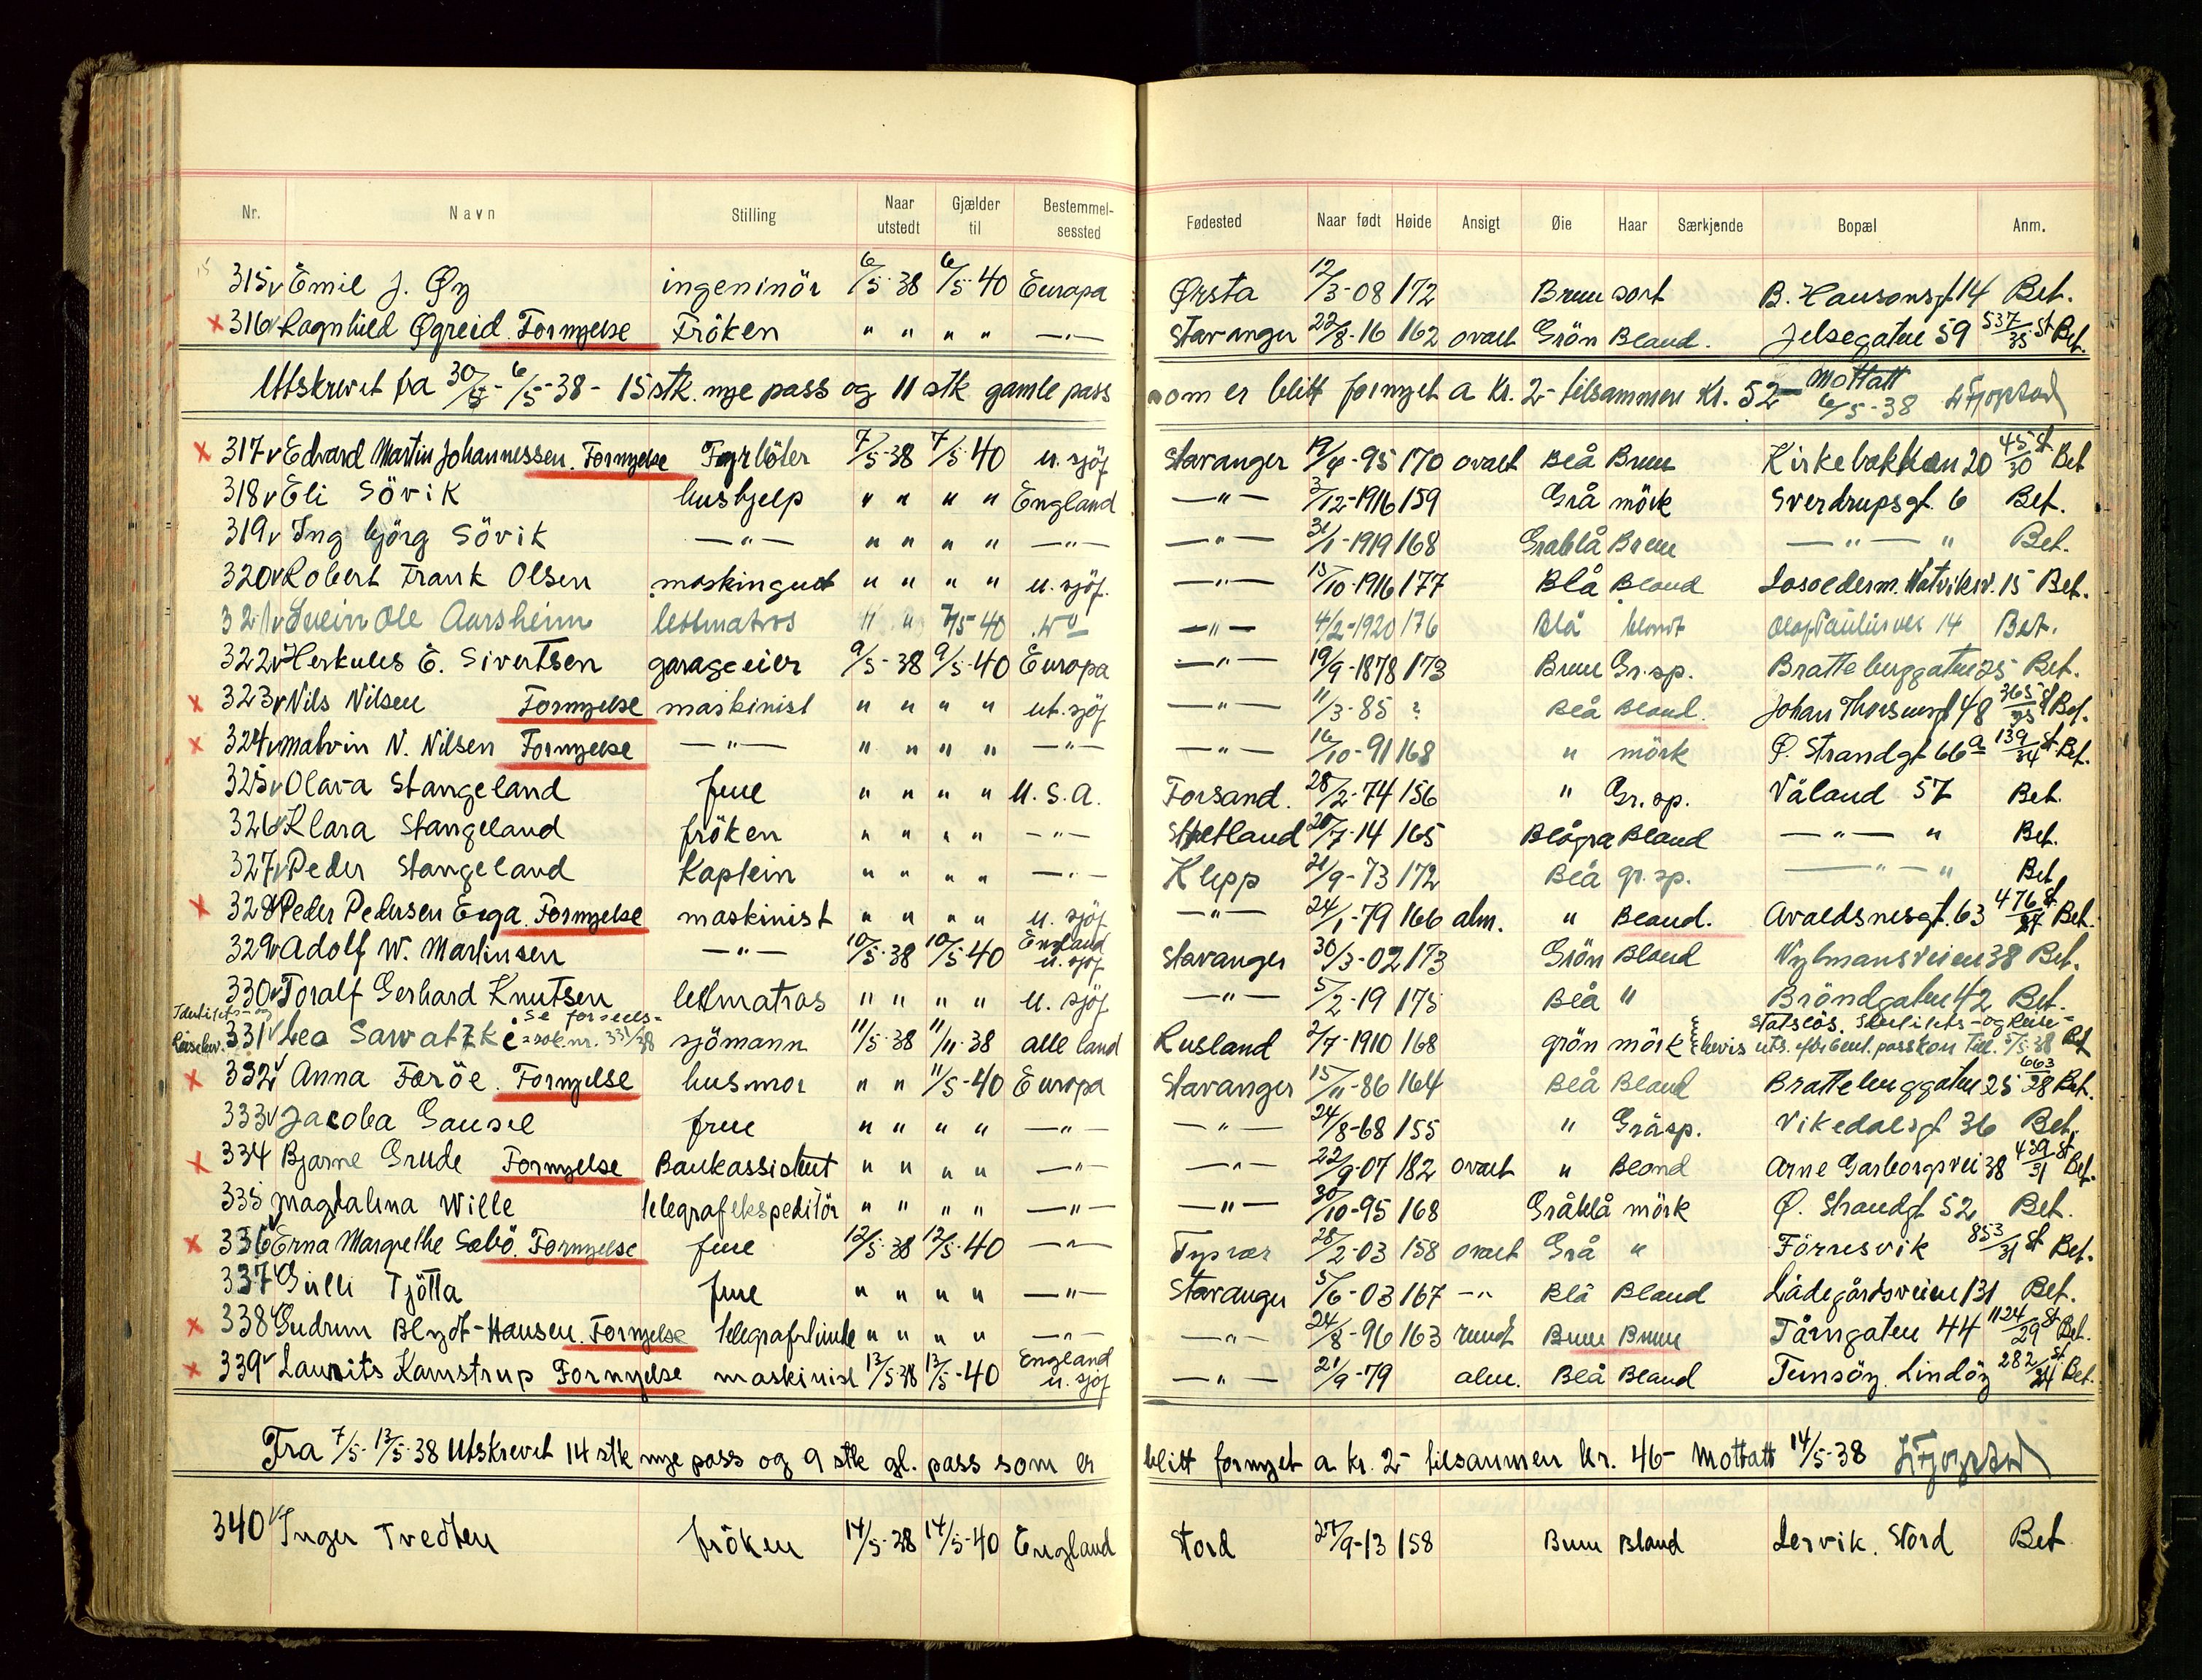 Nr. Navn Stilling Naar utstedt Gjælder til Bestemmelsessted Fødested Naar født Høide Ansigt Øie Haar Særkjende Bopæl Anm.
315 v Emil J. Øy ingeniör 6/5-38 6/5-40 Europa Ørsta 12/3-08 172 Brun sort B. Hansonsgt 14 Bet.
x 316 v Ragnhild Øgreid Fornyelse Fröken " " " " —"— Stavanger 22/8-16 162 ovalt Grön Blond. Jelsegaten 59 537/35 St Bet.
Utskrevet fra 30/4-6/5-38 - 15 stk. nye pass og 11 stk gamle pass som er blitt fornyet a Kr. 2- tilsammen Kr. 52- Mottatt 6/5-38
x 317 v Edvard Martin Johannessen. Fornyelse Fyrböter 7/5-38 7/5-40 u. sjöf Stavanger 19/4-95 170 ovalt Blå Brun Kirkebakken 20 45/30 St Bet
318 v Eli Sövik hushjelp " " " " England —"— 3/12-1916 159 Grå mörk Sverdrupsgt. 6 Bet.
319 v Ingbjörg Sövik —"— " " " " —"— —"— 31/1-1919 168 Gråblå Brun —"— " Bet.
320 v Robert Frank Olsen maskingut " " " " u. sjöf. —"— 15/10-1916 177 Blå Blond Losolderm. Natviksv. 15 Bet.
321 v Svein Ole Aarsheim lettmatros " " 7/5-40 —"— —"— 4/2-1920 176 Blå blondt Olaf Paulus vei 14 Bet.
322 v Herkules E. Sivertsen garageeier 9/5-38 9/5-40 Europa —"— 19/9-1878 173 Brun Gr.sp. Bratteburggaten 25 Bet.
x 323 v Nils Nilsen Fornyelse maskinist " " " " ut. sjöf —"— 11/3-85 ? Blå Blond. Johan Thorsensgt 48 365/25 St Bet.
x 324 v Malvin N. Nilsen Fornyelse —"— " " " " —"— —"— 16/10-91 168 " mörk Ø. Strandgt 66 a 139/34 St Bet.
325 v Olava Stangeland frue " " " " U.S.A. Forsand. 28/2-74 156 " Gr.sp. Våland 57 Bet.
326 v Klara Stangeland fröken " " " " —"— Hetland 20/7-14 165 Blågrå Blond —"— " Bet.
327 v Peder Stangeland Kaptein " " " " —"— Klepp 21/9-73 172 Blå gr.sp. —"— " Bet
x 328 v Peder Pedersen Erga. Fornyelse maskinist " " " " u. sjöf —"— 24/1-79 166 alm. " Blond. Avaldsnesgt. 63 476/27 St. Bet.
329 v Adolf W. Martinsen —"— 10/5-38 10/5-40 England u. sjöf Stavanger 30/3-02 173 Grön Blond Nylmansveien 38 Bet.
330 v Toralf Gerhard Knutsen lettmatros " " " " u. sjöf —"— 5/2-19 175 Blå " Bröndgaten 42 Bet.
Identitets- og Reisebev. 331 v Leo Sawatzki se forseels-sak nr. 331/38 sjömann 11/5-38 11/11-38 alle land Rusland 2/7-1910 168 grön mörk statslös. Identitets- og Reise-bevis uts. efter Cent. passkon. Till. 5/5-38 Bet
x 332 v Anna Færöe. Fornyelse husmor " " 11/5-40 Europa Stavanger 15/11-86 164 Blå Blond Bratteburggaten 25 663/28 Bet.
333 v Jacoba Gausel frue " " " " —"— —"— 24/8-68 155 " Gråsp. Vikedalsgt 36 Bet.
x 334 Bjarne Grude Fornyelse Bankassistent " " " " —"— —"— 22/9-07 182 ovalt " Blond Arne Garborgsvei 38 439/31 St Bet.
335 Magdalina Wille telegrafekspeditör " " " " —"— —"— 30/10-95 168 Gråblå mörk Ø. Strandgt 52 Bet.
x 336 v Erna Margrethe Sæbö. Fornyelse frue 12/5-38 12/5-40 —"— Tysvær 28/2-03 158 ovalt Grå " Förresvik 853/31 St Bet.
337 v Gulli Tjötta frue " " " " —"— Stavanger 5/6-03 167 —"— Blå Blond Lådegårdsveien 131 Bet.
x 338 v Gudrun Blydt-Hansen. Fornyelse telegrafistinde " " " " —"— —"— 24/8-96 163 rundt Brun Brun Tårngaten 44 1124/29 St Bet.
x 339 v Laurits Kamstrup Fornyelse maskinist 13/5-38 13/5-40 England u. sjöf —"— 21/9-79 alm. Blå Blond Tunsöy. Lindöy 282/24 St. Bet.
Fra 7/5-13/5-38 Utskrevet 14 stk nye pass og 9 stk gl. pass som er blitt fornyet a kr. 2- tilsammen kr. 46- Mottatt 14/5-38
340 v Inger Tvedten fröken 14/5-38 14/5-40 England Stord 27/9-13 158 Brun Blond Lervik. Stord Bet